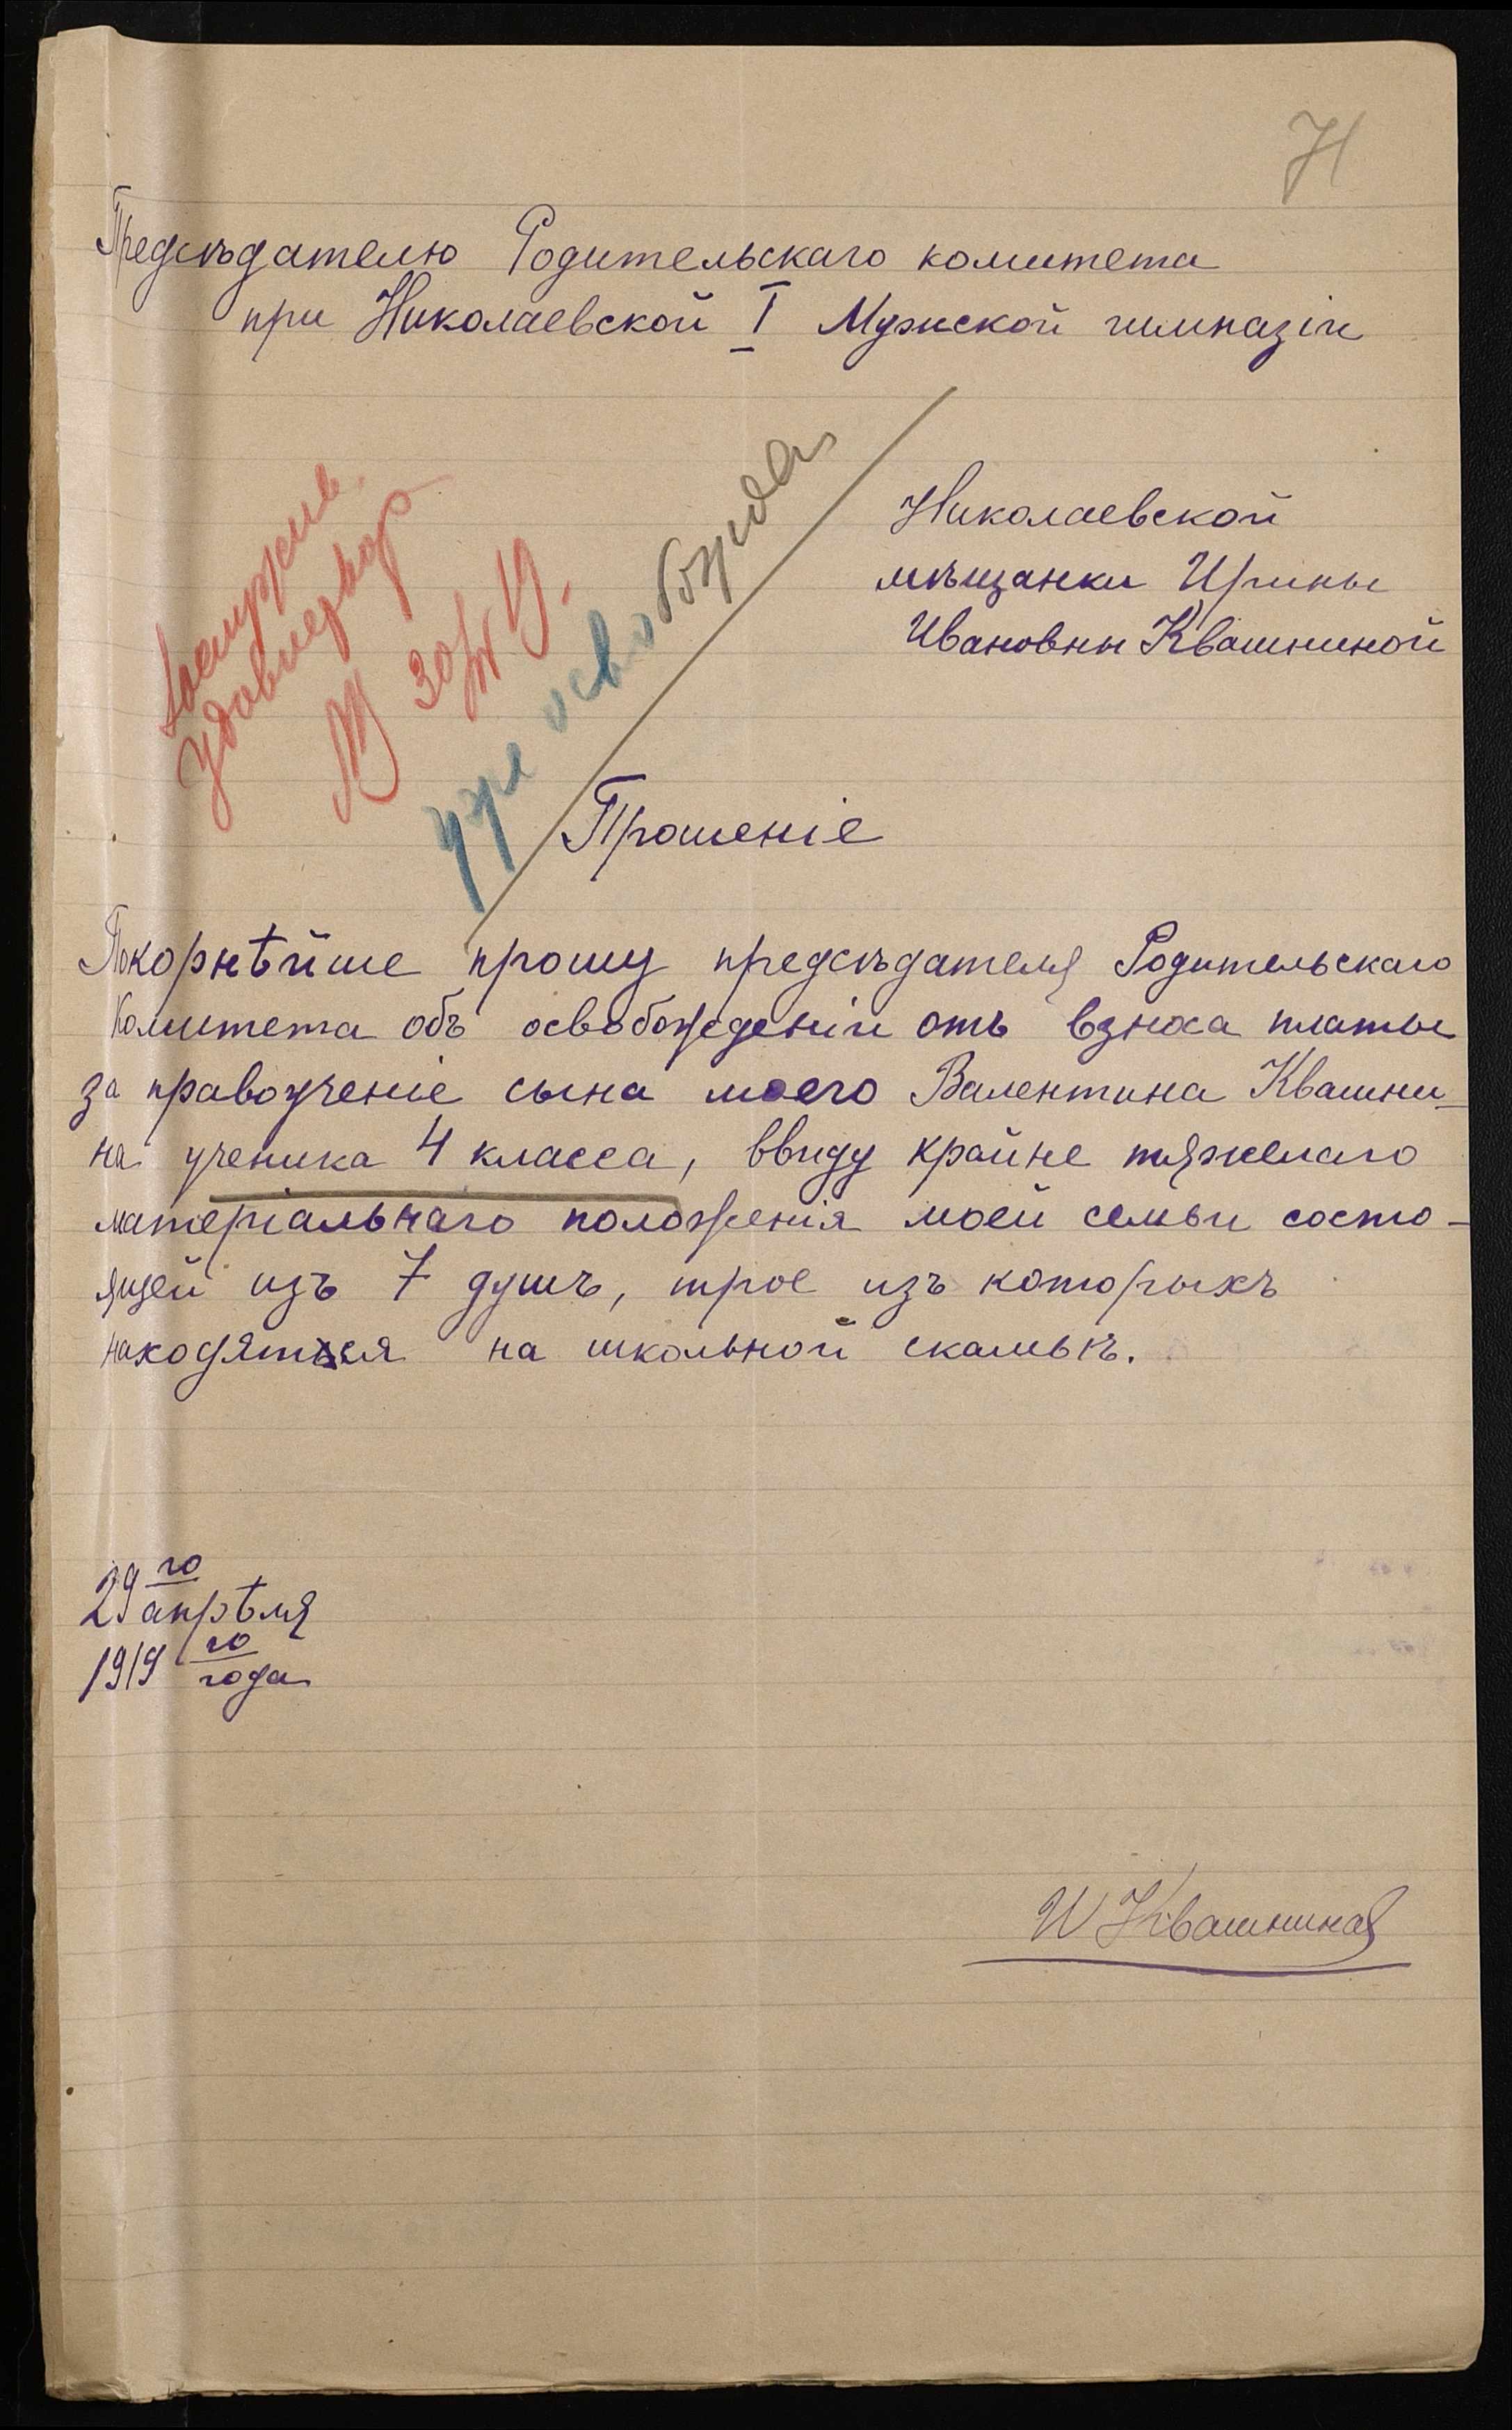 Н
Предсѣдателю Родительскаго комитета
при Николаевской I Мужской гимназіи
Николаевской
мѣщанки Ирины
Ивановны Квашниной
удовлетвор
30/IV
уже освобожден
Прошеніе
Покорнѣйше прошу предсѣдателя Родительскаго
Комитета объ освобожденіи отъ взноса платы
за правоученіе сына моего Валентина Квашни-
на ученика 4 класса, ввиду крайне тяжелаго
матеріальнаго положенія моей семьи состо-
ящей изъ 7 душъ, трое изъ которыхъ
находятся на школьной скамьѣ.
29го
апрѣля
1919 го
года
И Квашнина